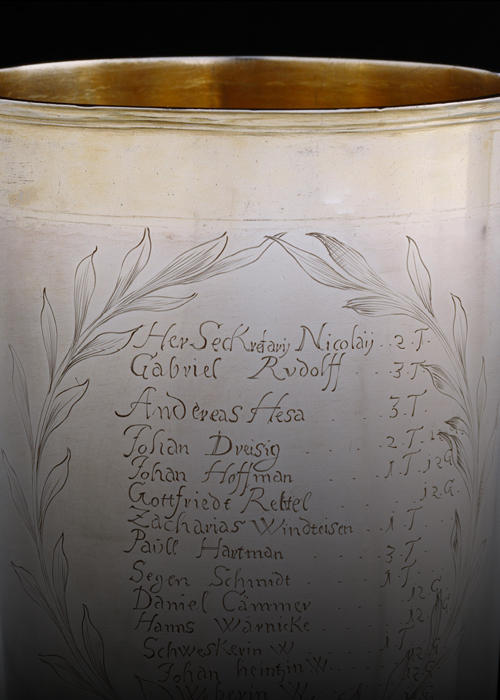 Her Seckretarij Nicolaij . . 2 . T .
Gabriel Rvdolff . . 3 . T .
Andereas Hesa . . . 3 . T .
Johan Dreisig . . 2 . T .
Johan Hoffman . . . 1 T . 12 G
Gottfriedt Rebtel 12 G .
Zacharias Windteisen . . 1 T .
Paüll Hartman . . . 3 . T
Segen Schmidt . . . 1 T .
Daniel Cämmer . . . 12 G
Hanns Warnicke . . . 12
Schweskerin W . . . 1 T
Johan heintzin W . . . 12 G
Weberin W . . .